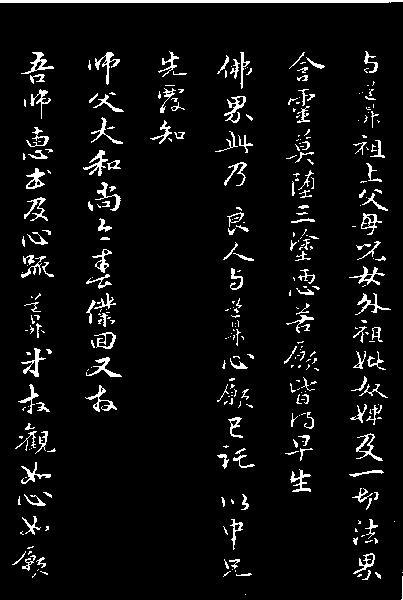 与道昇祖上父母兒女外祖妣奴婢及一切法界
含靈莫墮三塗惡苦願皆得早生
佛界此乃良人与道昇心願已託以中兄
先覆知
师父大和尚今春僕回又收
吾师惠書及心疏道昇拜收觀如心如願